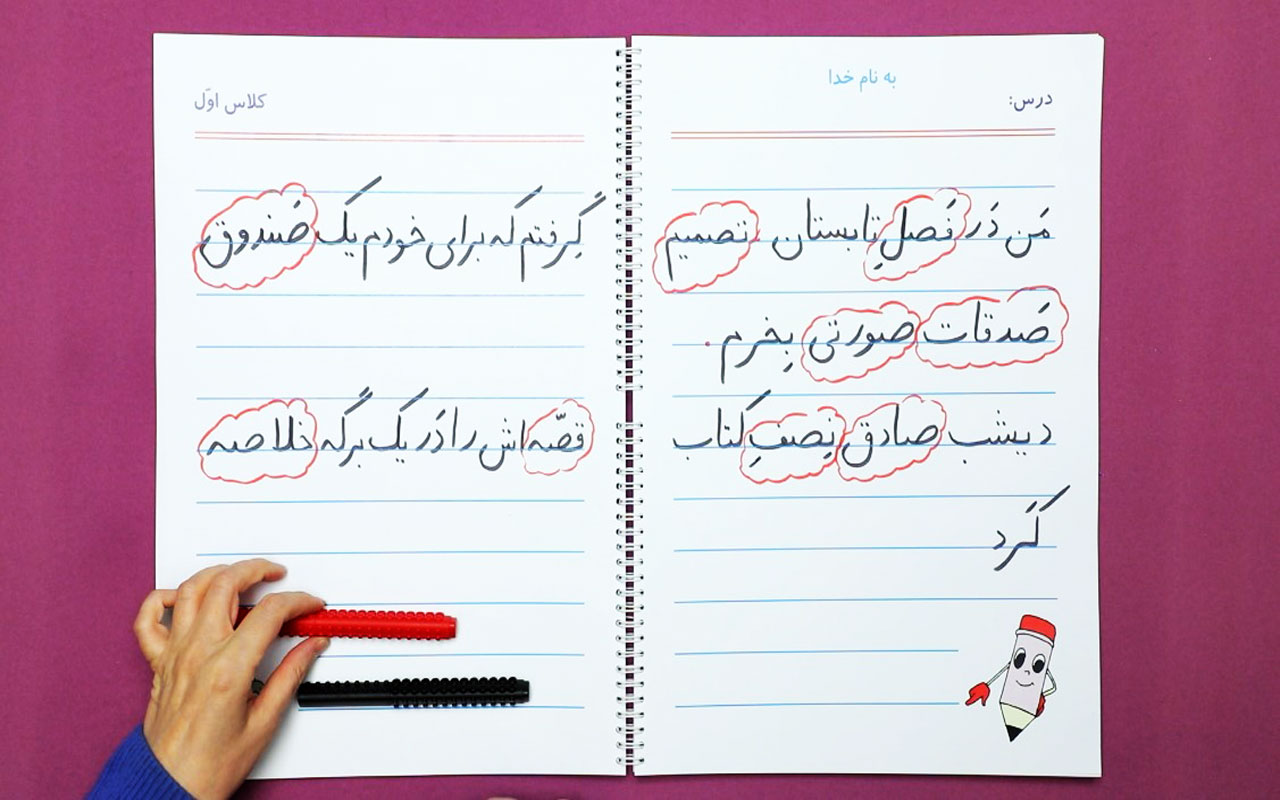 به نام خدا
درس:
کلاس اوّل
مَن دَر فَصلِ تابستان تَصمیم
گِرفتم که برای خودم یک صَندوق
صَدقات صورتی بِخرم .
دیشب صادق نِصفِ کتاب
قصّه اش را دَر یک برگه خلاصه
کَرد